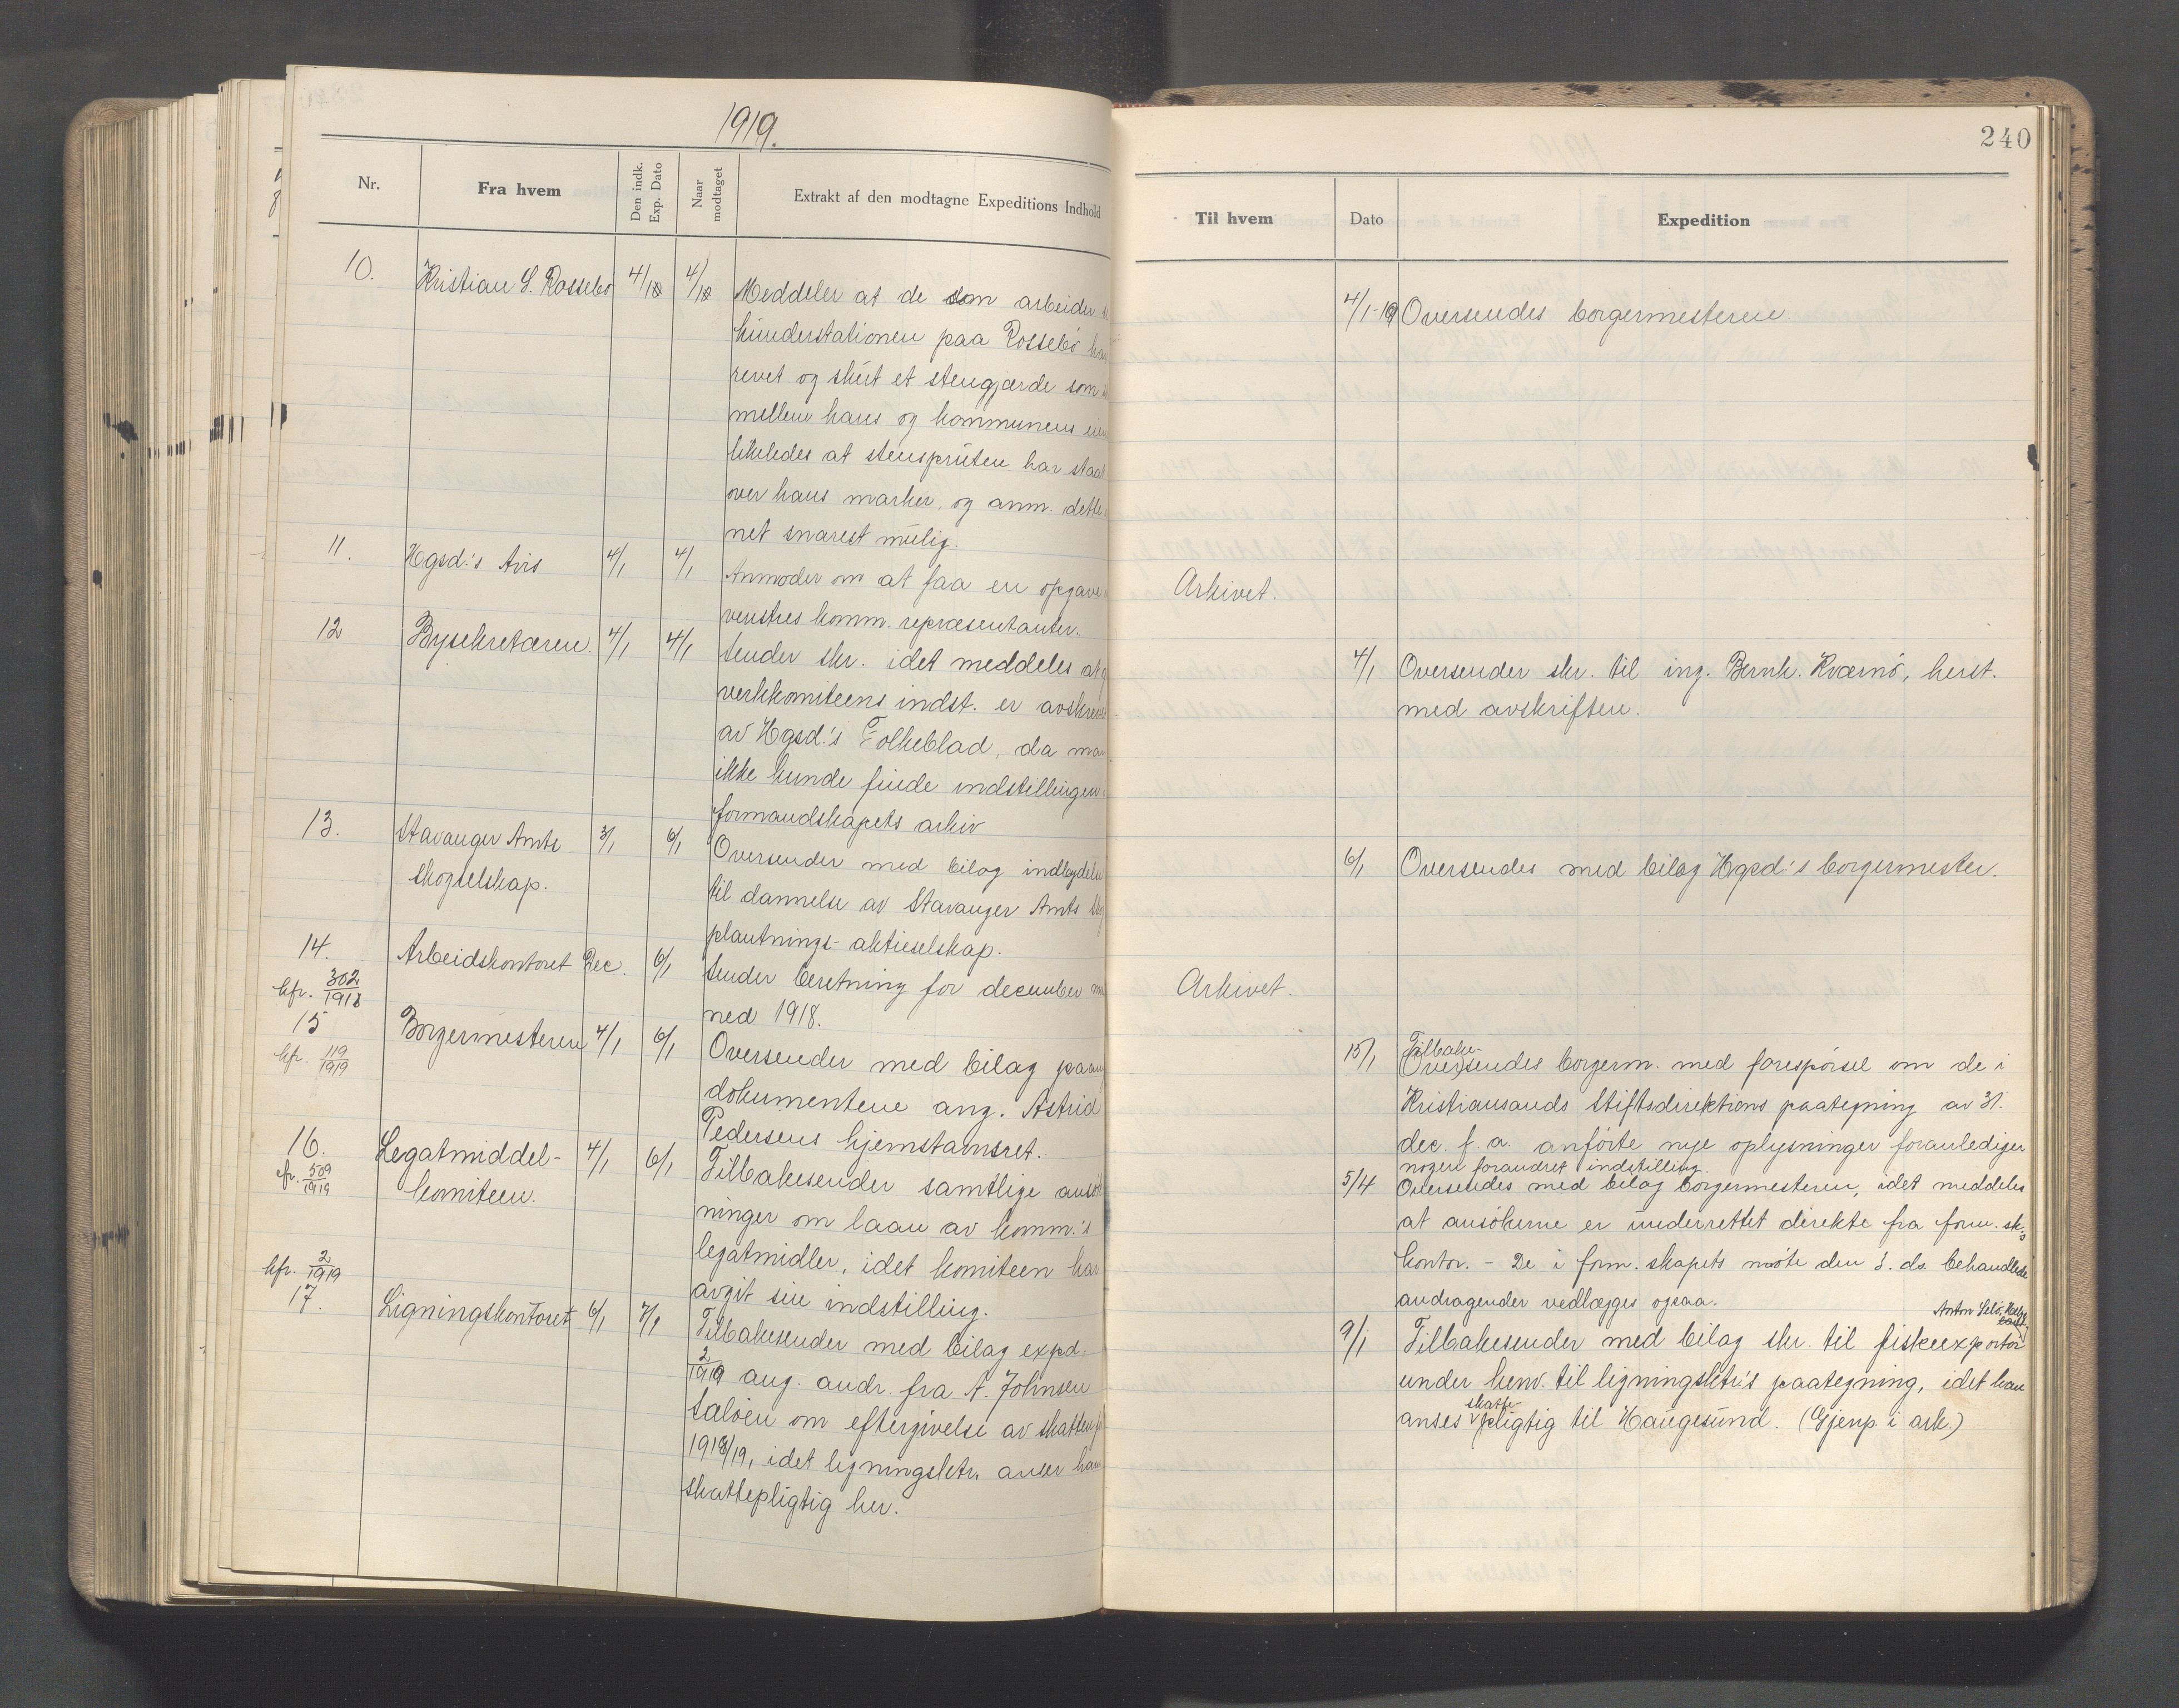 1919.
Nr.
Fra hvem
Den indk. Exp. Dato
Naar modtaget
Extrakt af den modtagne Expeditions Indhold
10.
Kristian S. Rossebø
4/18
4/18
Meddeler at de som arbeider
paa Rossebø
revet og skut et stengjærde som
mellem hans og kommunens
likeledes at stenspruten har staat
over hans marker, og anm. dette
net snarest mulig.
11.
Hgsd.'s Avis
4/1
4/1
Anmoder om at faa en opgave
venstres komm. repræsentanter.
12
Bysekretæren.
4/1
4/1
Sender skr. idet meddeles at
verkkomiteens indst. er avskrevet
av Hgsd.'s Folkeblad, da man
ikke kunde finde indstillingen
formandskapets arkiv
13.
Stavanger Amts
skogselskap.
3/1
6/1
Oversender med bilag indbydelse
til dannelse av Stavanger Amts
plantnings-aktieselskap.
14.
kfr. 302/1918
Arbeidskontoret
Dec.
6/1
Sender beretning for december
ned 1918.
15
kfr. 119/1919
Borgermesteren
4/1
6/1
Oversender med bilag
dokumentene ang. Astrid
Pedersens hjemstavnsret.
16.
cfr. 509/1919
Legatmiddel-
komiteen.
4/1
6/1
Tilbakesender samtlige
ninger om laan av komm.'s
legatmidler, idet komiteen har
avgit sin indstilling.
kfr. 2/1919
17.
Ligningskontoret
6/1
7/1
Tilbakesender med bilag exped.
2/1919 ang. andr. fra A. Johnsen
om eftergivelse av skatten
1918/19, idet ligningsktr. anser ham
skattepligtig her.
240
Til hvem
Dato
Expedition
4/1-19
Oversendes borgermesteren.
Arkivet.
4/1
Oversender skr. til ing. Bernh. Kværnø, herst.
med avskriften.
6/1
Oversendes med bilag Hgsd.'s borgermester.
Arkivet.
15/1
Tilbake-
(Over)sendes borgerm. med forespørsel om de i
Kristiansands Stiftsdirektions paategning av 31.
dec. f. a. anførte nye oplysninger foranlediger
nogen forandret indstilling.
5/4
Oversendes med bilag borgermesteren, idet meddeles
at ansøkerne er underrettet direkte fra form. sk.'s
kontor. - De i form. skapets møte den 3. ds. behandlede
andragender vedlægges ogsaa.
Anton
9/1
Tilbakesender med bilag skr. til fiskeexportør
under henv. til ligningsktr.'s paategning, idet han
skatte-
anses pligtig til Haugesund. (Gjenp. i ark.)